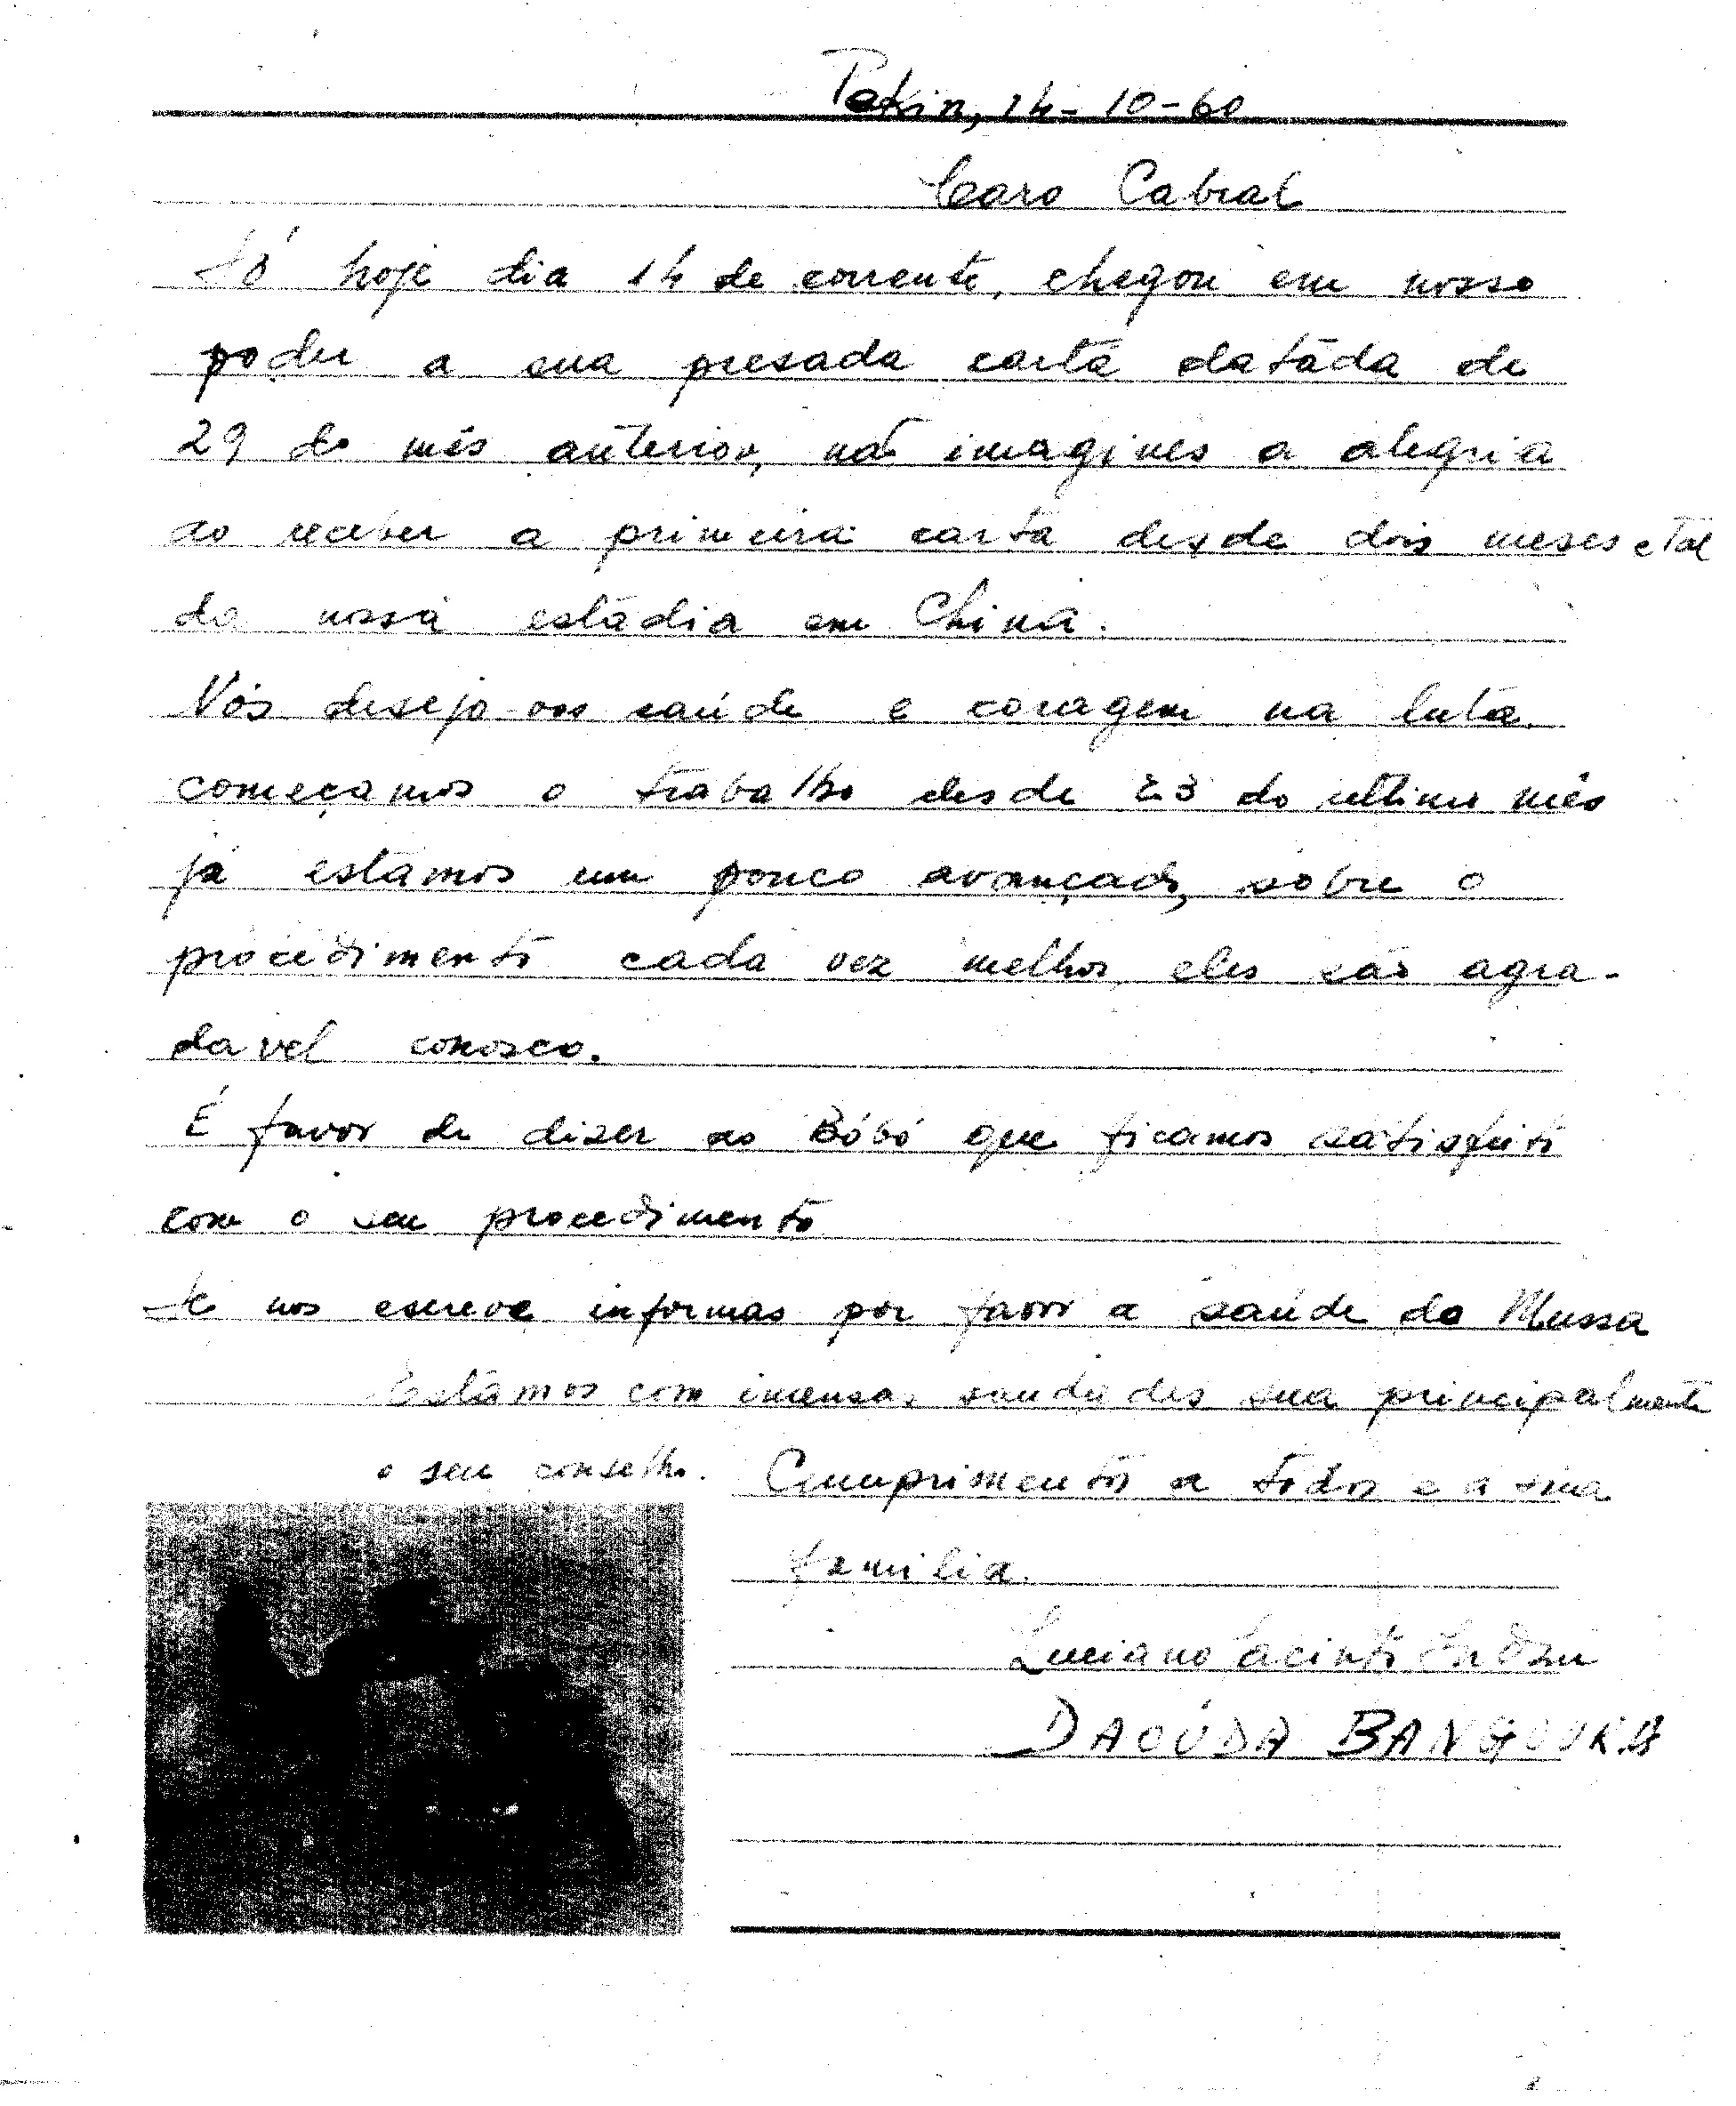 Pekin, 14-10-60
Caro Cabral
Só hoje dia 14 de corrente, chegou em nosso
poder a sua presada carta datada de
29 do mês anterior, não imagines a alegria
ao receber a primeira carta desde dois meses e tal
da nossa estadia em China.
Nós desejo-vos saúde e coragem na luta.
começamos o trabalho desde 23 do ultimo mês
já estamos um pouco avançado, sobre o
procedimento cada vez melhor, eles são agra-
davel conosco.
É favor de dizer ao Bóbó que ficamos satisfeito
com o seu procedimento
Se nos escreve informas por favor a saúde do Mussa
Estamos com imensas saudades sua principalmente
o seu conselho. Cumprimentos a todos e a sua
familia.
Luciano
DAOÚDA BANGOURA